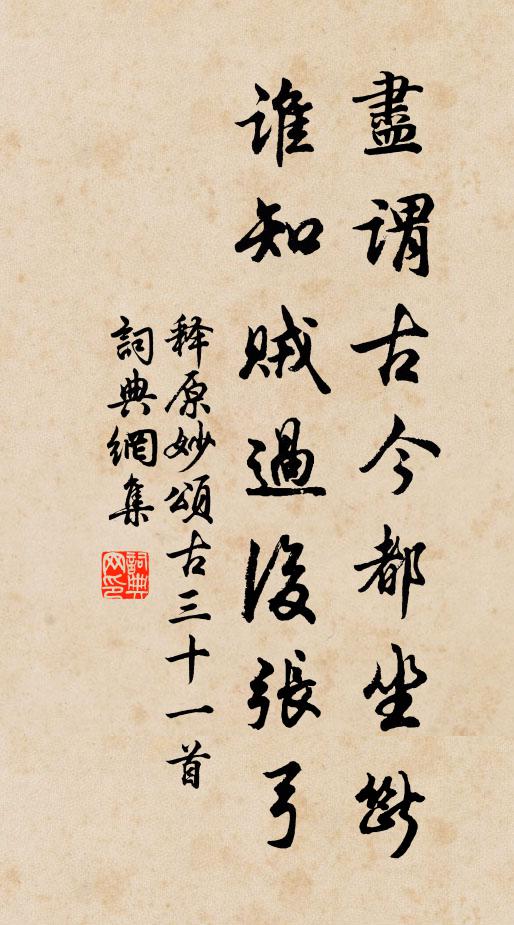 盡謂古今都坐斷
誰知賊過後張弓
释原妙頌古三十一首
詞典網集
詞典網印